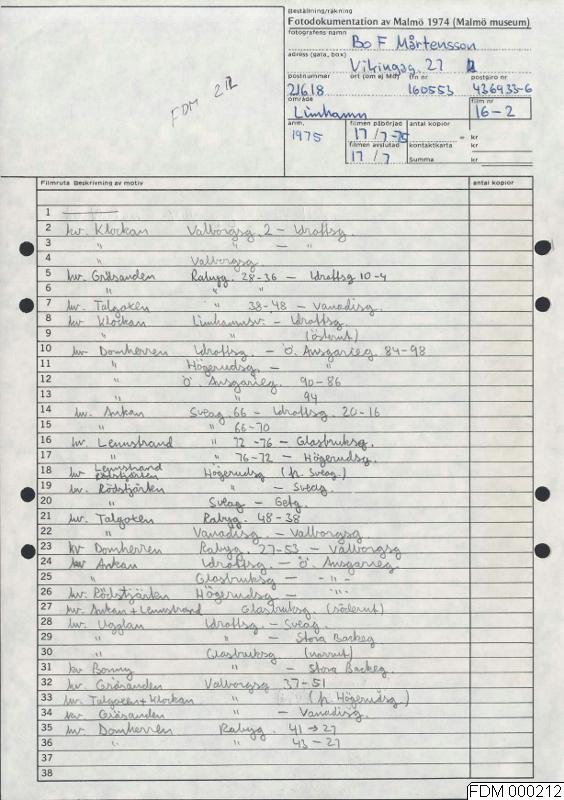 Beställning/räkning
Fotodokumentation av Malmö 1974 (Malmö museum)
fotografens namn
Bo F Mårtensson
adress (gata, box)
Vikingag. 27
postnummer ort (om ej Mö) tfn nr postgiro nr
21618 160553 436933-6
område film nr
Limhamn 16-2
anm. filmen påbörjad antal kopior
1975 17/7-75 = kr
filmen avslutad kontaktkarta kr
17/7 Summa kr
FDM 212
Filmruta Beskrivning av motiv antal kopior
1
2 kv. Klockan Valborgsg. 2 - Idrottsg.
3 " " - "
4 " Valborgsg.
5 kv. Gräsanden Rabyg. 28-36 - Idrottsg 10-4
6 " " "
7 kv. Talgoxen " 38-48 - Vanadisg.
8 kv Klockan Limhamnsv. - Idrottsg.
9 " " (österut)
10 kv Domherren Idrottsg. - Ö. Ansgarieg. 84-98
11 " Högerudsg - "
12 " Ö. Ansgarieg. 90-86
13 " " 94
14 kv. Ankan Sveag. 66 - Idrottsg. 20-16
15 " " 66-70
16 kv. Lennstrand " 72-76 - Glasbruksg.
17 " " 76-72 - Högerudsg.
18 kv Lennstrand Rödstjärten Högerudsg (fr. Sveag.)
19 kv. Rödstjärten " - Sveag.
20 " Sveag - Getg.
21 kv. Talgoxen Rabyg. 48-38
22 " Vanadisg. - Valborgsg.
23 kv Domherren Rabyg. 27-53 - Valborgsg
24 kv Ankan Idrottsg. - Ö. Ansgarieg.
25 " Glasbruksg - - " -
26 kv. Rödstjärten Högerudsg - - " -
27 kv. Ankan + Lennstrand Glasbruksg. (söderut)
28 kv. Ugglan Idrottsg. - Sveag.
29 " " - Stora Backeg
30 " Glasbruksg (norrut)
31 kv Bonny " - Stora Backeg.
32 kv. Gräsanden Valborgsg 37-51
33 kv. Talgoxen + Klockan " (fr. Högerudsg.)
34 kv. Gräsanden " - Vanadisg.
35 kv. Domherren Rabyg. 41 → 27
36 " " 43 - 27
37
38
FDM 000212